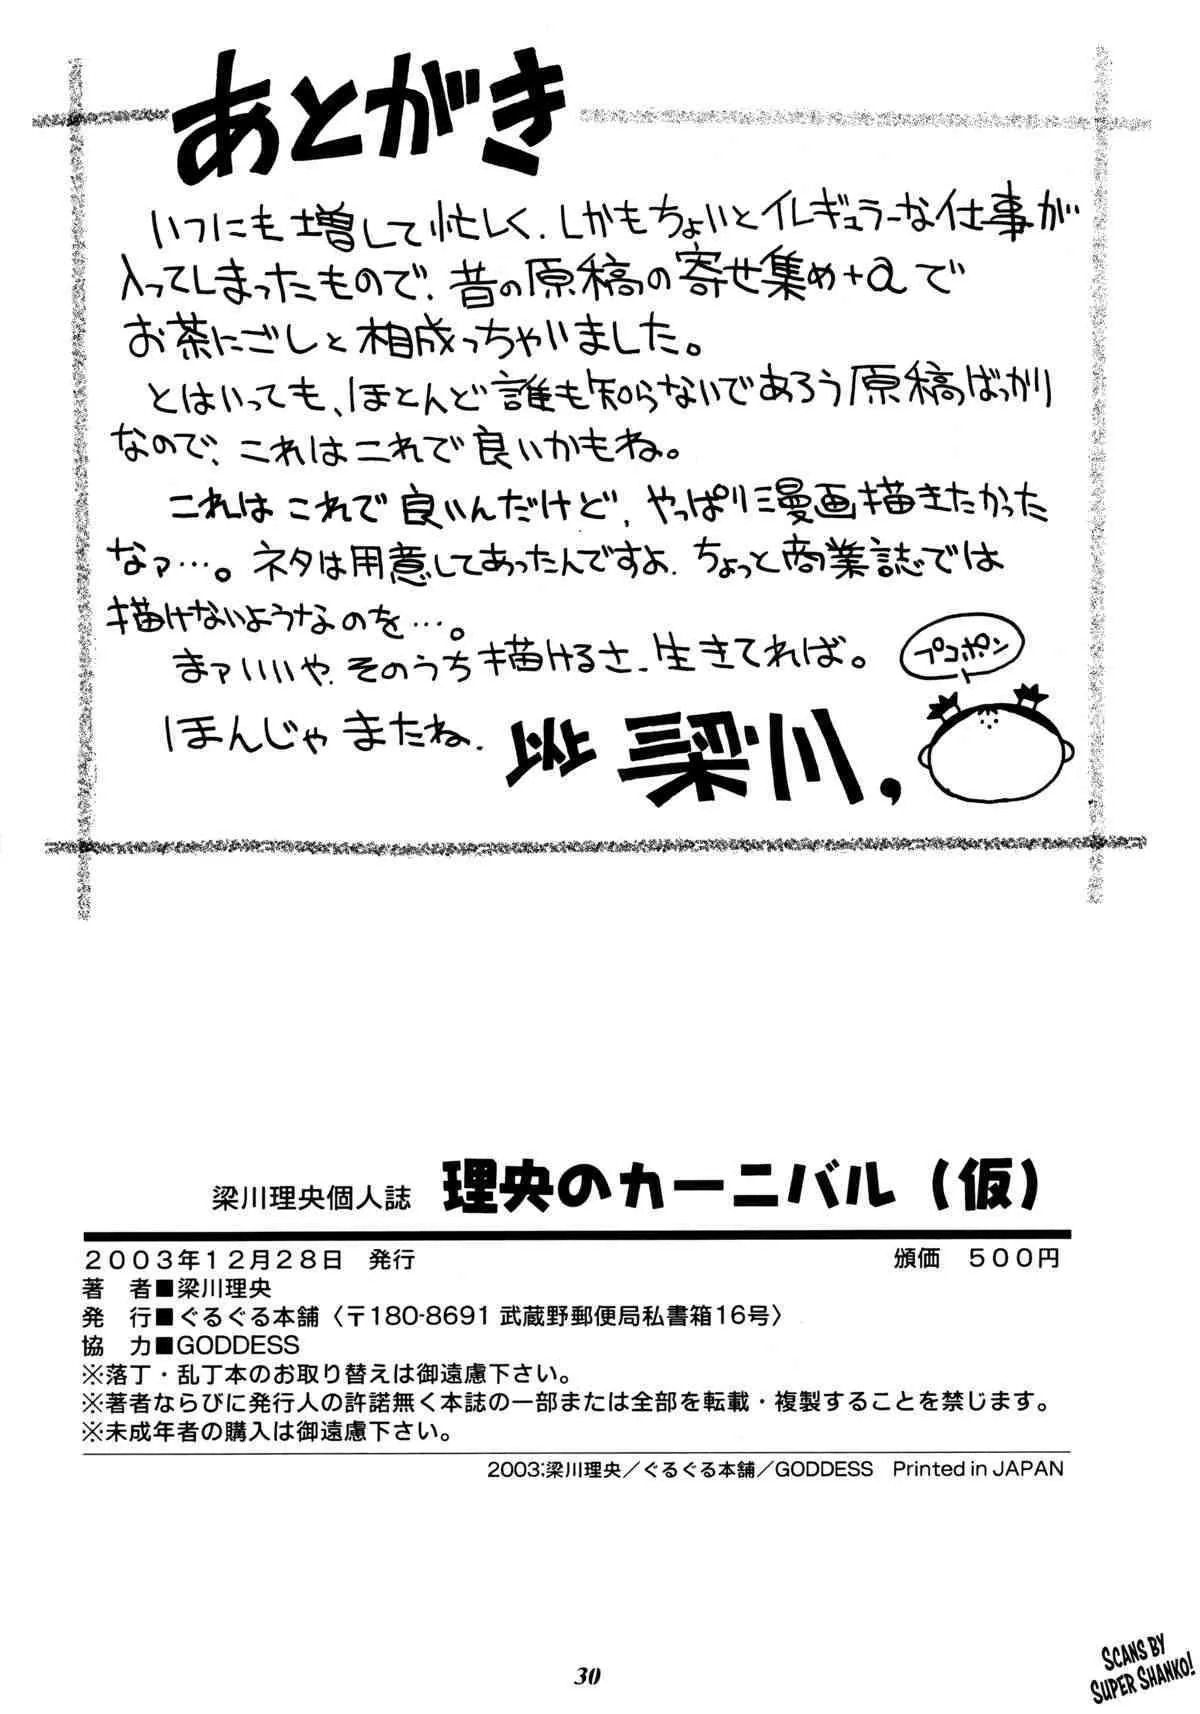 あとがき
いつにも増して忙しく、しかもちょいとイレギュラーな仕事が
入ってしまったもので、昔の原稿の寄せ集め+αで
お茶にごしと相成っちゃいました。
とはいっても、ほとんど誰も知らないであろう原稿ばっかり
なので、これはこれで良いかもね。
これはこれで良いんだけど、やっぱり漫画描きたかった
なァ…。ネタは用意してあったんですよ、ちょっと商業誌では
描けないようなのを…。
まァいいや、そのうち描けるさ、生きてれば。
プコポン
ほんじゃまたね、
以上 梁川,
梁川理央個人誌 理央のカーニバル（仮）
2003年12月28日 発行 頒価 500円
著 者■梁川理央
発 行■ぐるぐる本舗〈〒180-8691 武蔵野郵便局私書箱16号〉
協 力■GODDESS
※落丁・乱丁本のお取り替えは御遠慮下さい。
※著者ならびに発行人の許諾無く本誌の一部または全部を転載・複製することを禁じます。
※未成年者の購入は御遠慮下さい。
2003;梁川理央／ぐるぐる本舗／GODDESS Printed in JAPAN
30
SCANS BY
SUPER SHANKO!